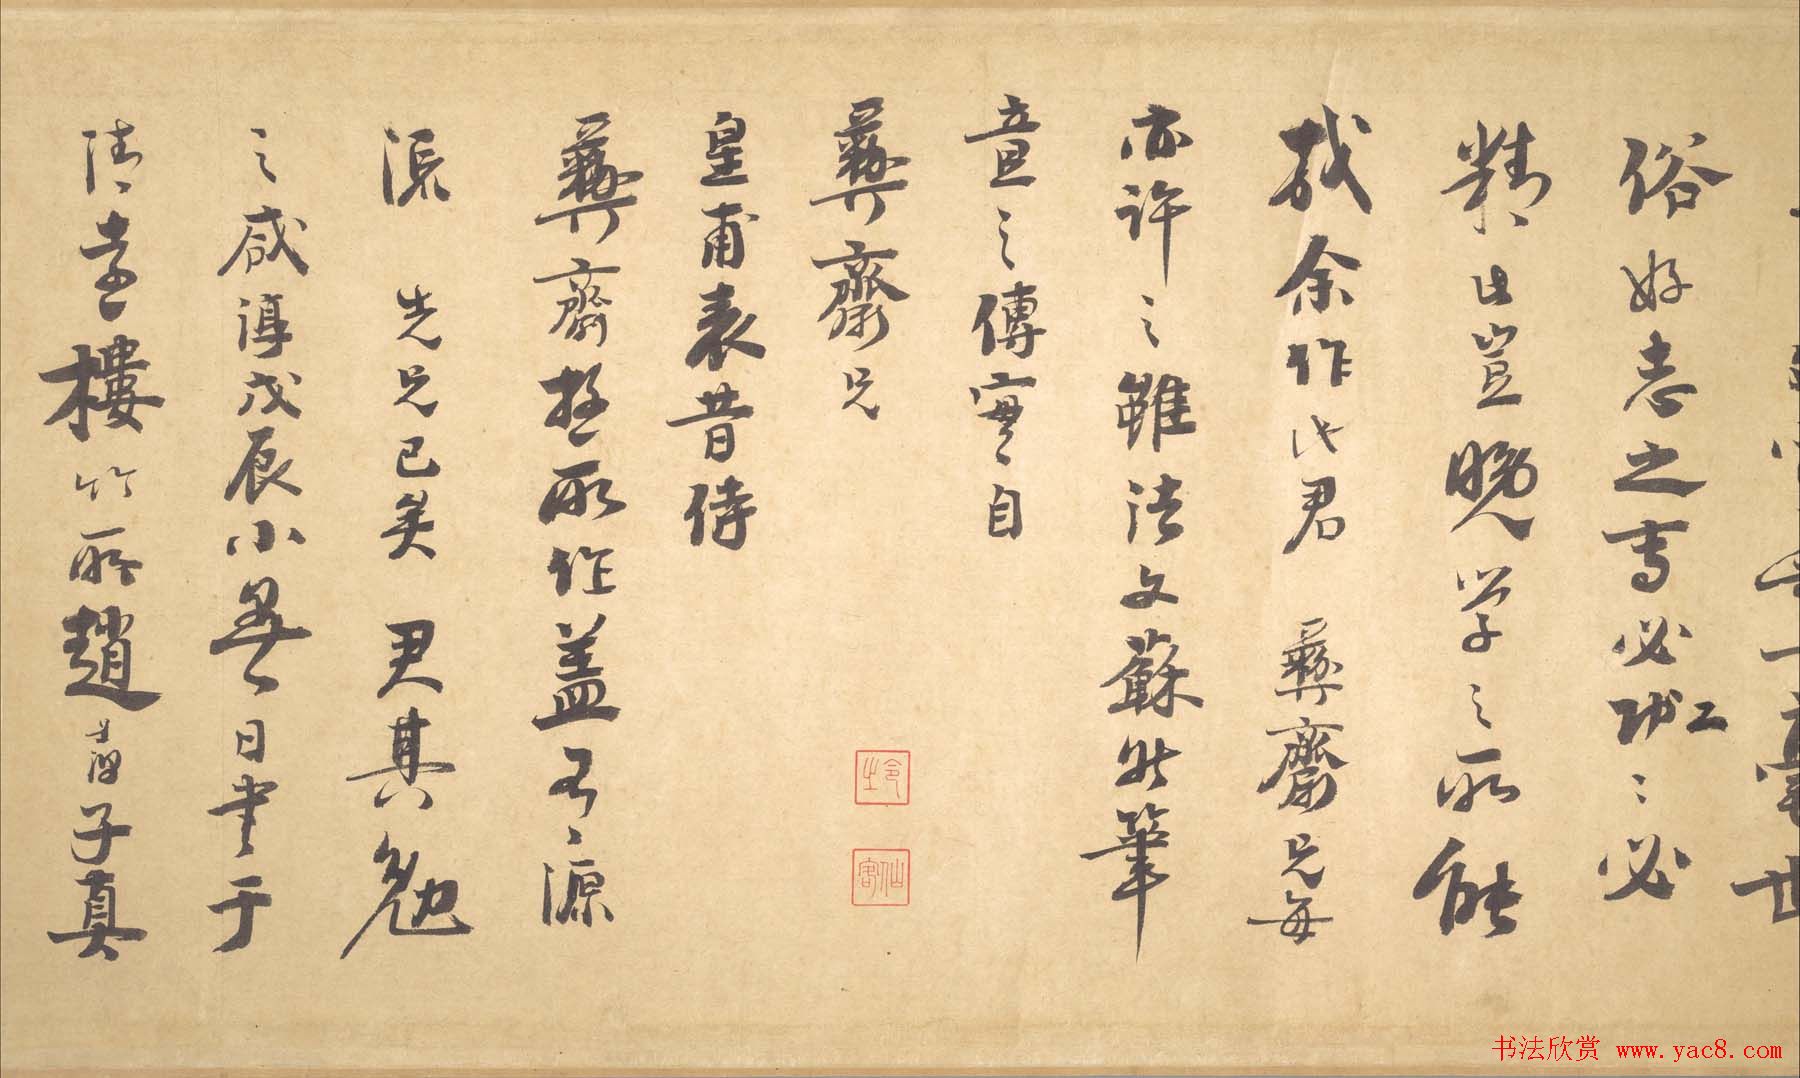 一毫世
俗好志之專必功工〻必
精此豈晚学之所能
哉余作此君 彝齋兄每
亦許之雖法文蘇然筆
意之傳實自
彝齋兄
皇甫表昔侍
彝齋遊所作蓋有源
流 先兄已矣 君其勉
之咸淳戊辰小暑日書于
清樓竹所趙孟淳子真
仙客
书法欣赏 www.yac8.com